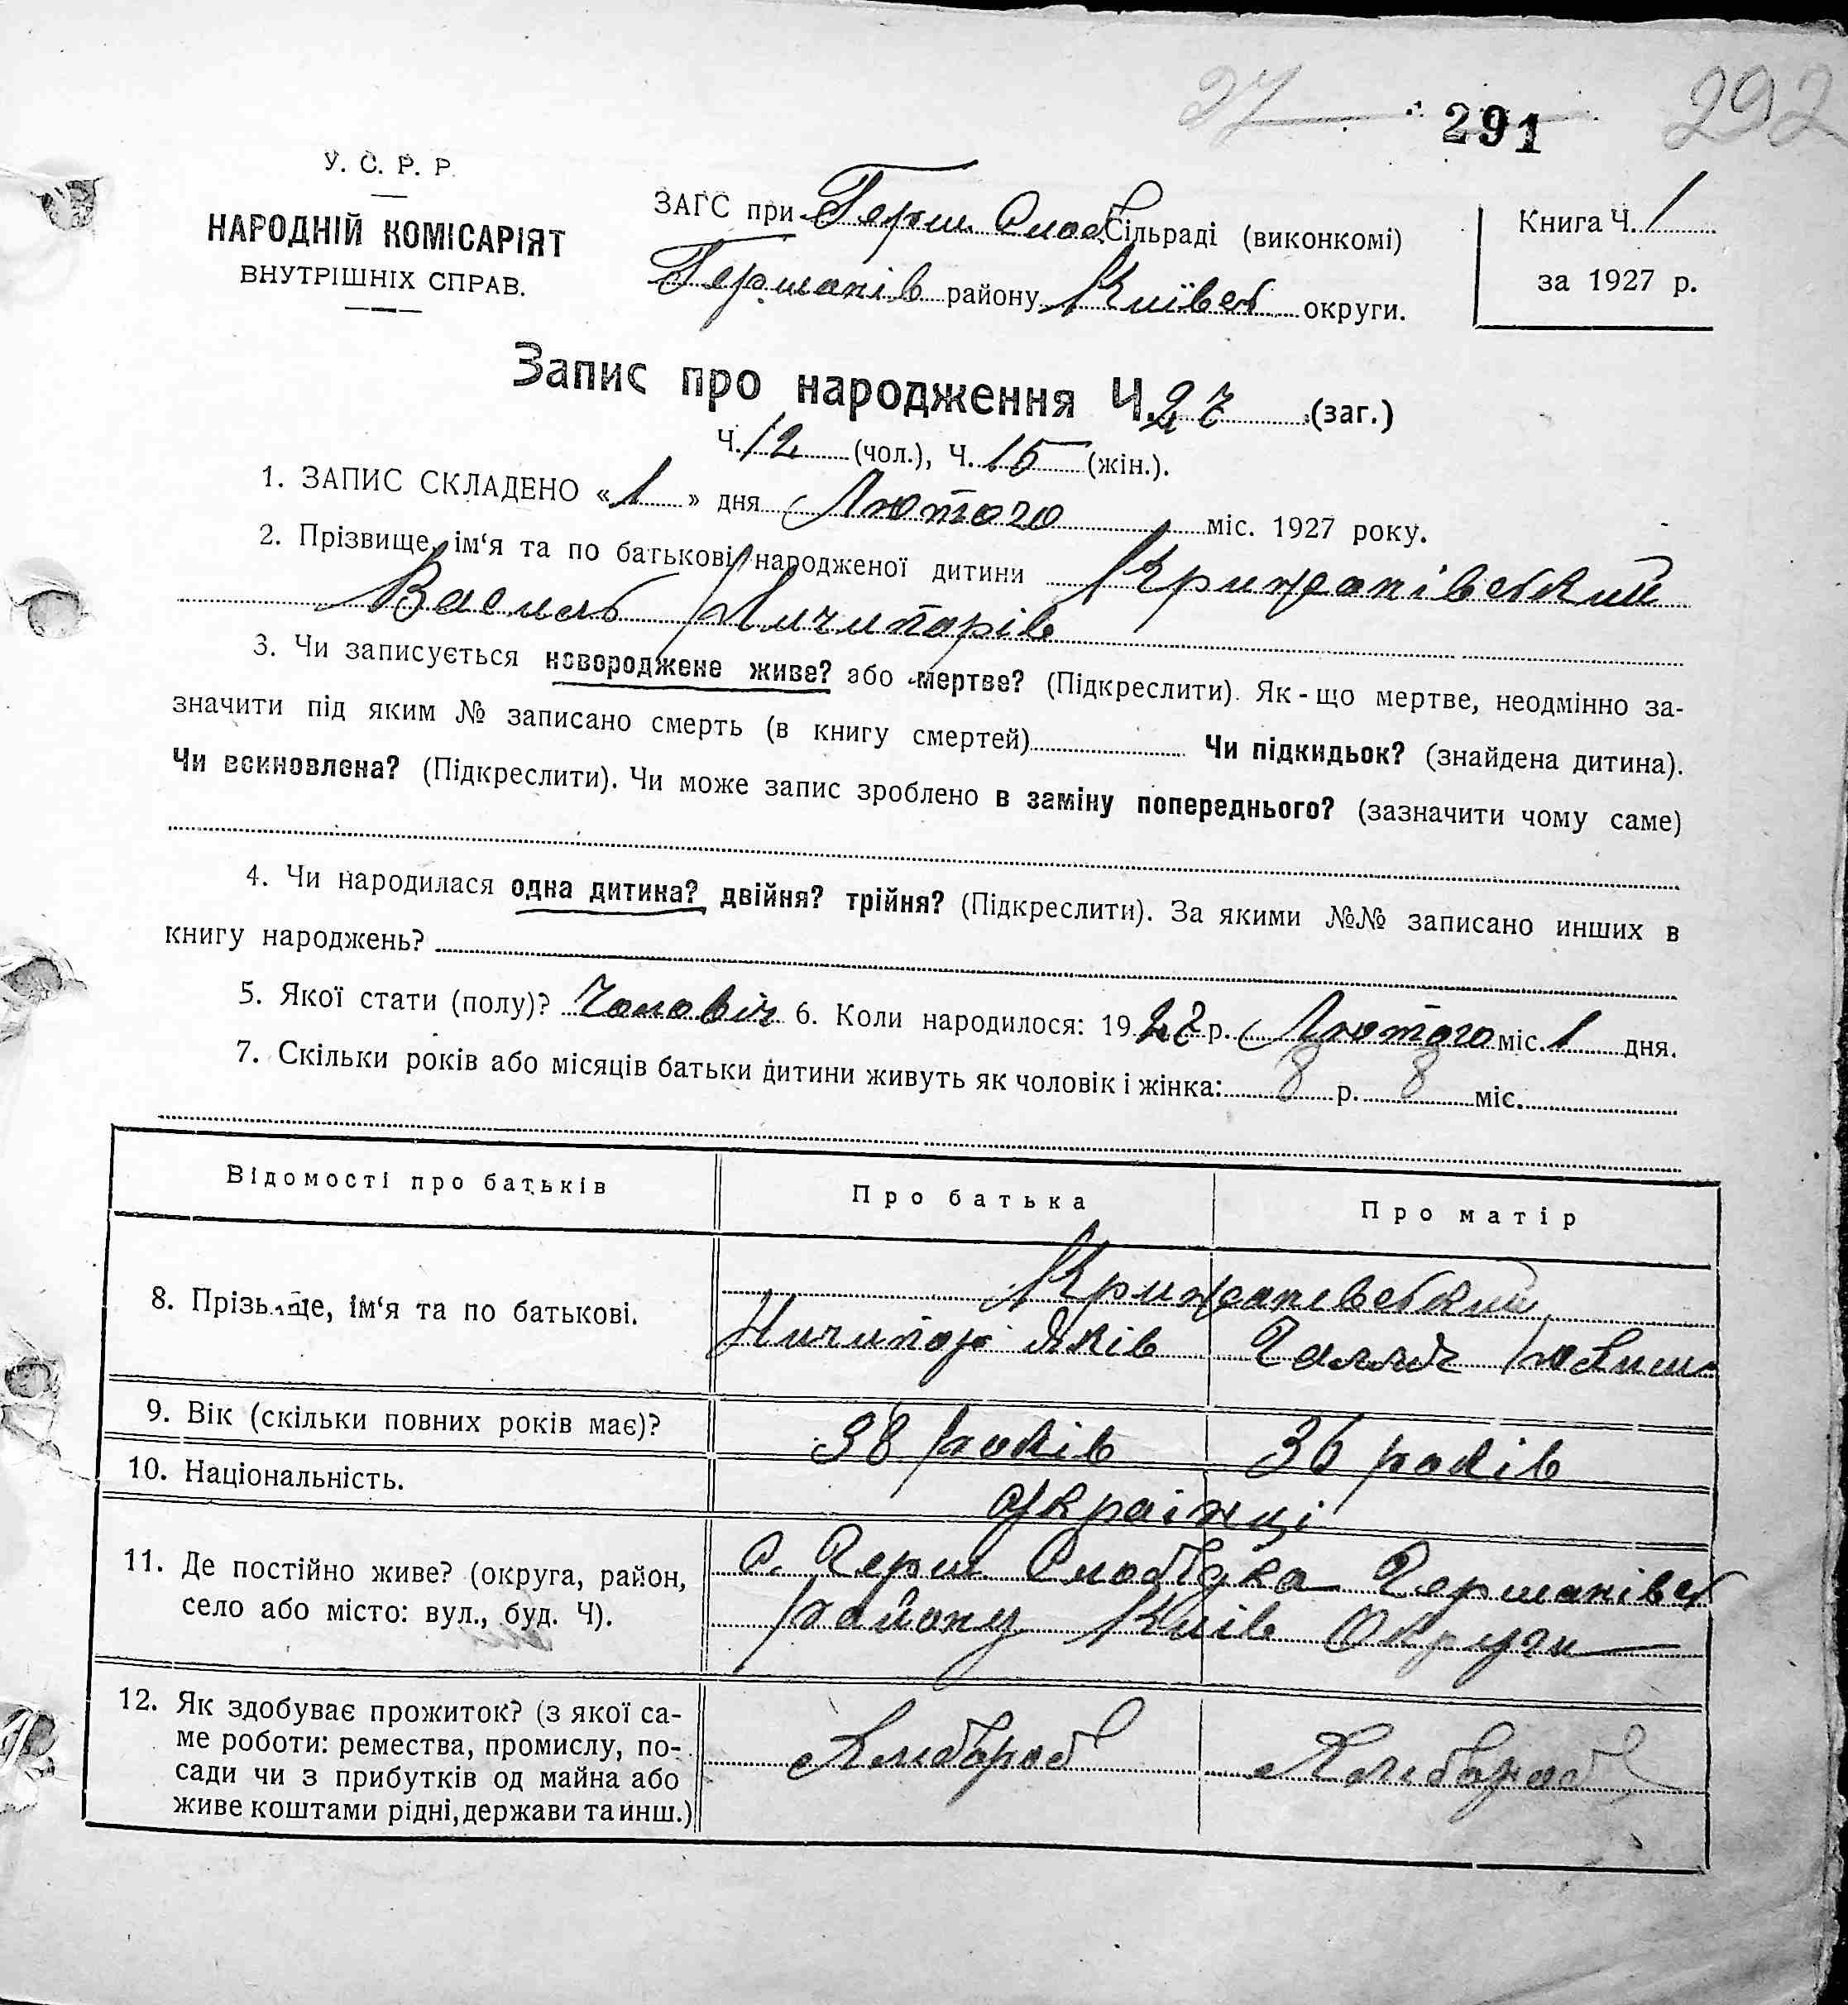 27 291 292
У. С. Р. Р.
НАРОДНІЙ КОМІСАРІЯТ
ВНУТРІШНІХ СПРАВ.
ЗАГС при Герм. Слоб. Сільраді (виконкомі)
Германів району Київськ округи.
Книга Ч. 1
за 1927 р.
Запис про народження Ч. 27 (заг.)
Ч. 12 (чол.), Ч. 15 (жін.).
1. ЗАПИС СКЛАДЕНО «1» дня Лютого міс. 1927 року.
2. Прізвище, ім‘я та по батькові народженої дитини Крижанівський
Василь Ничипорів
3. Чи записується новороджене живе? або мертве? (Підкреслити). Як-що мертве, неодмінно за-
значити під яким № записано смерть (в книгу смертей) Чи підкидьок? (знайдена дитина).
Чи всиновлена? (Підкреслити). Чи може запис зроблено в заміну попереднього? (зазначити чому саме)
4. Чи народилася одна дитина? двійня? трійня? (Підкреслити). За якими №№ записано инших в
книгу народжень?
5. Якої стати (полу)? Чоловіч 6. Коли народилося: 1927 р. Лютого міс. 1 дня.
7. Скільки років або місяців батьки дитини живуть як чоловік і жінка: 8 р. 8 міс.
Відомості про батьків Про батька Про матір
8. Прізвище, ім‘я та по батькові.
Крижанівський
Ничипор Яків
9. Вік (скільки повних років має)? 38 років 36 років
10. Національність. Українці
11. Де постійно живе? (округа, район,
село або місто: вул., буд. Ч).
С. Герм Слобідка Германівськ
району Київ Округи
12. Як здобуває прожиток? (з якої са-
ме роботи: ремества, промислу, по-
сади чи з прибутків од майна або
живе коштами рідні, держави та инш.)
Хлібороб Хлібороб